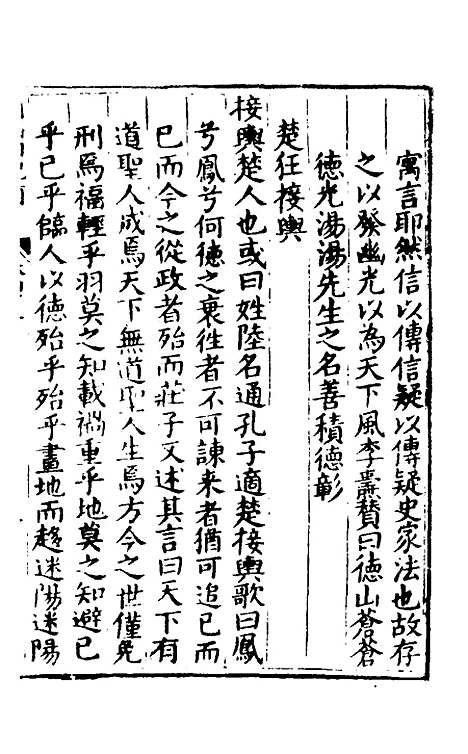 寓言耶然信以傳信疑以傳疑史家法也故存
之以發幽光以為天下風李燾贊曰德山蒼蒼
德光湯湯先生之名善積德彰
楚狂接輿
接輿楚人也或曰姓陸名通孔子適楚接輿歌曰鳳
兮鳳兮何德之衰徃者不可諫来者猶可追已而
已而今之從政者殆而莊子又述其言曰天下有
道聖人成焉天下無道聖人生焉方今之世僅免
刑焉福輕乎羽莫之知載禍重乎地莫之知避已
乎已乎臨人以德殆乎殆乎畫地而趍迷陽迷陽